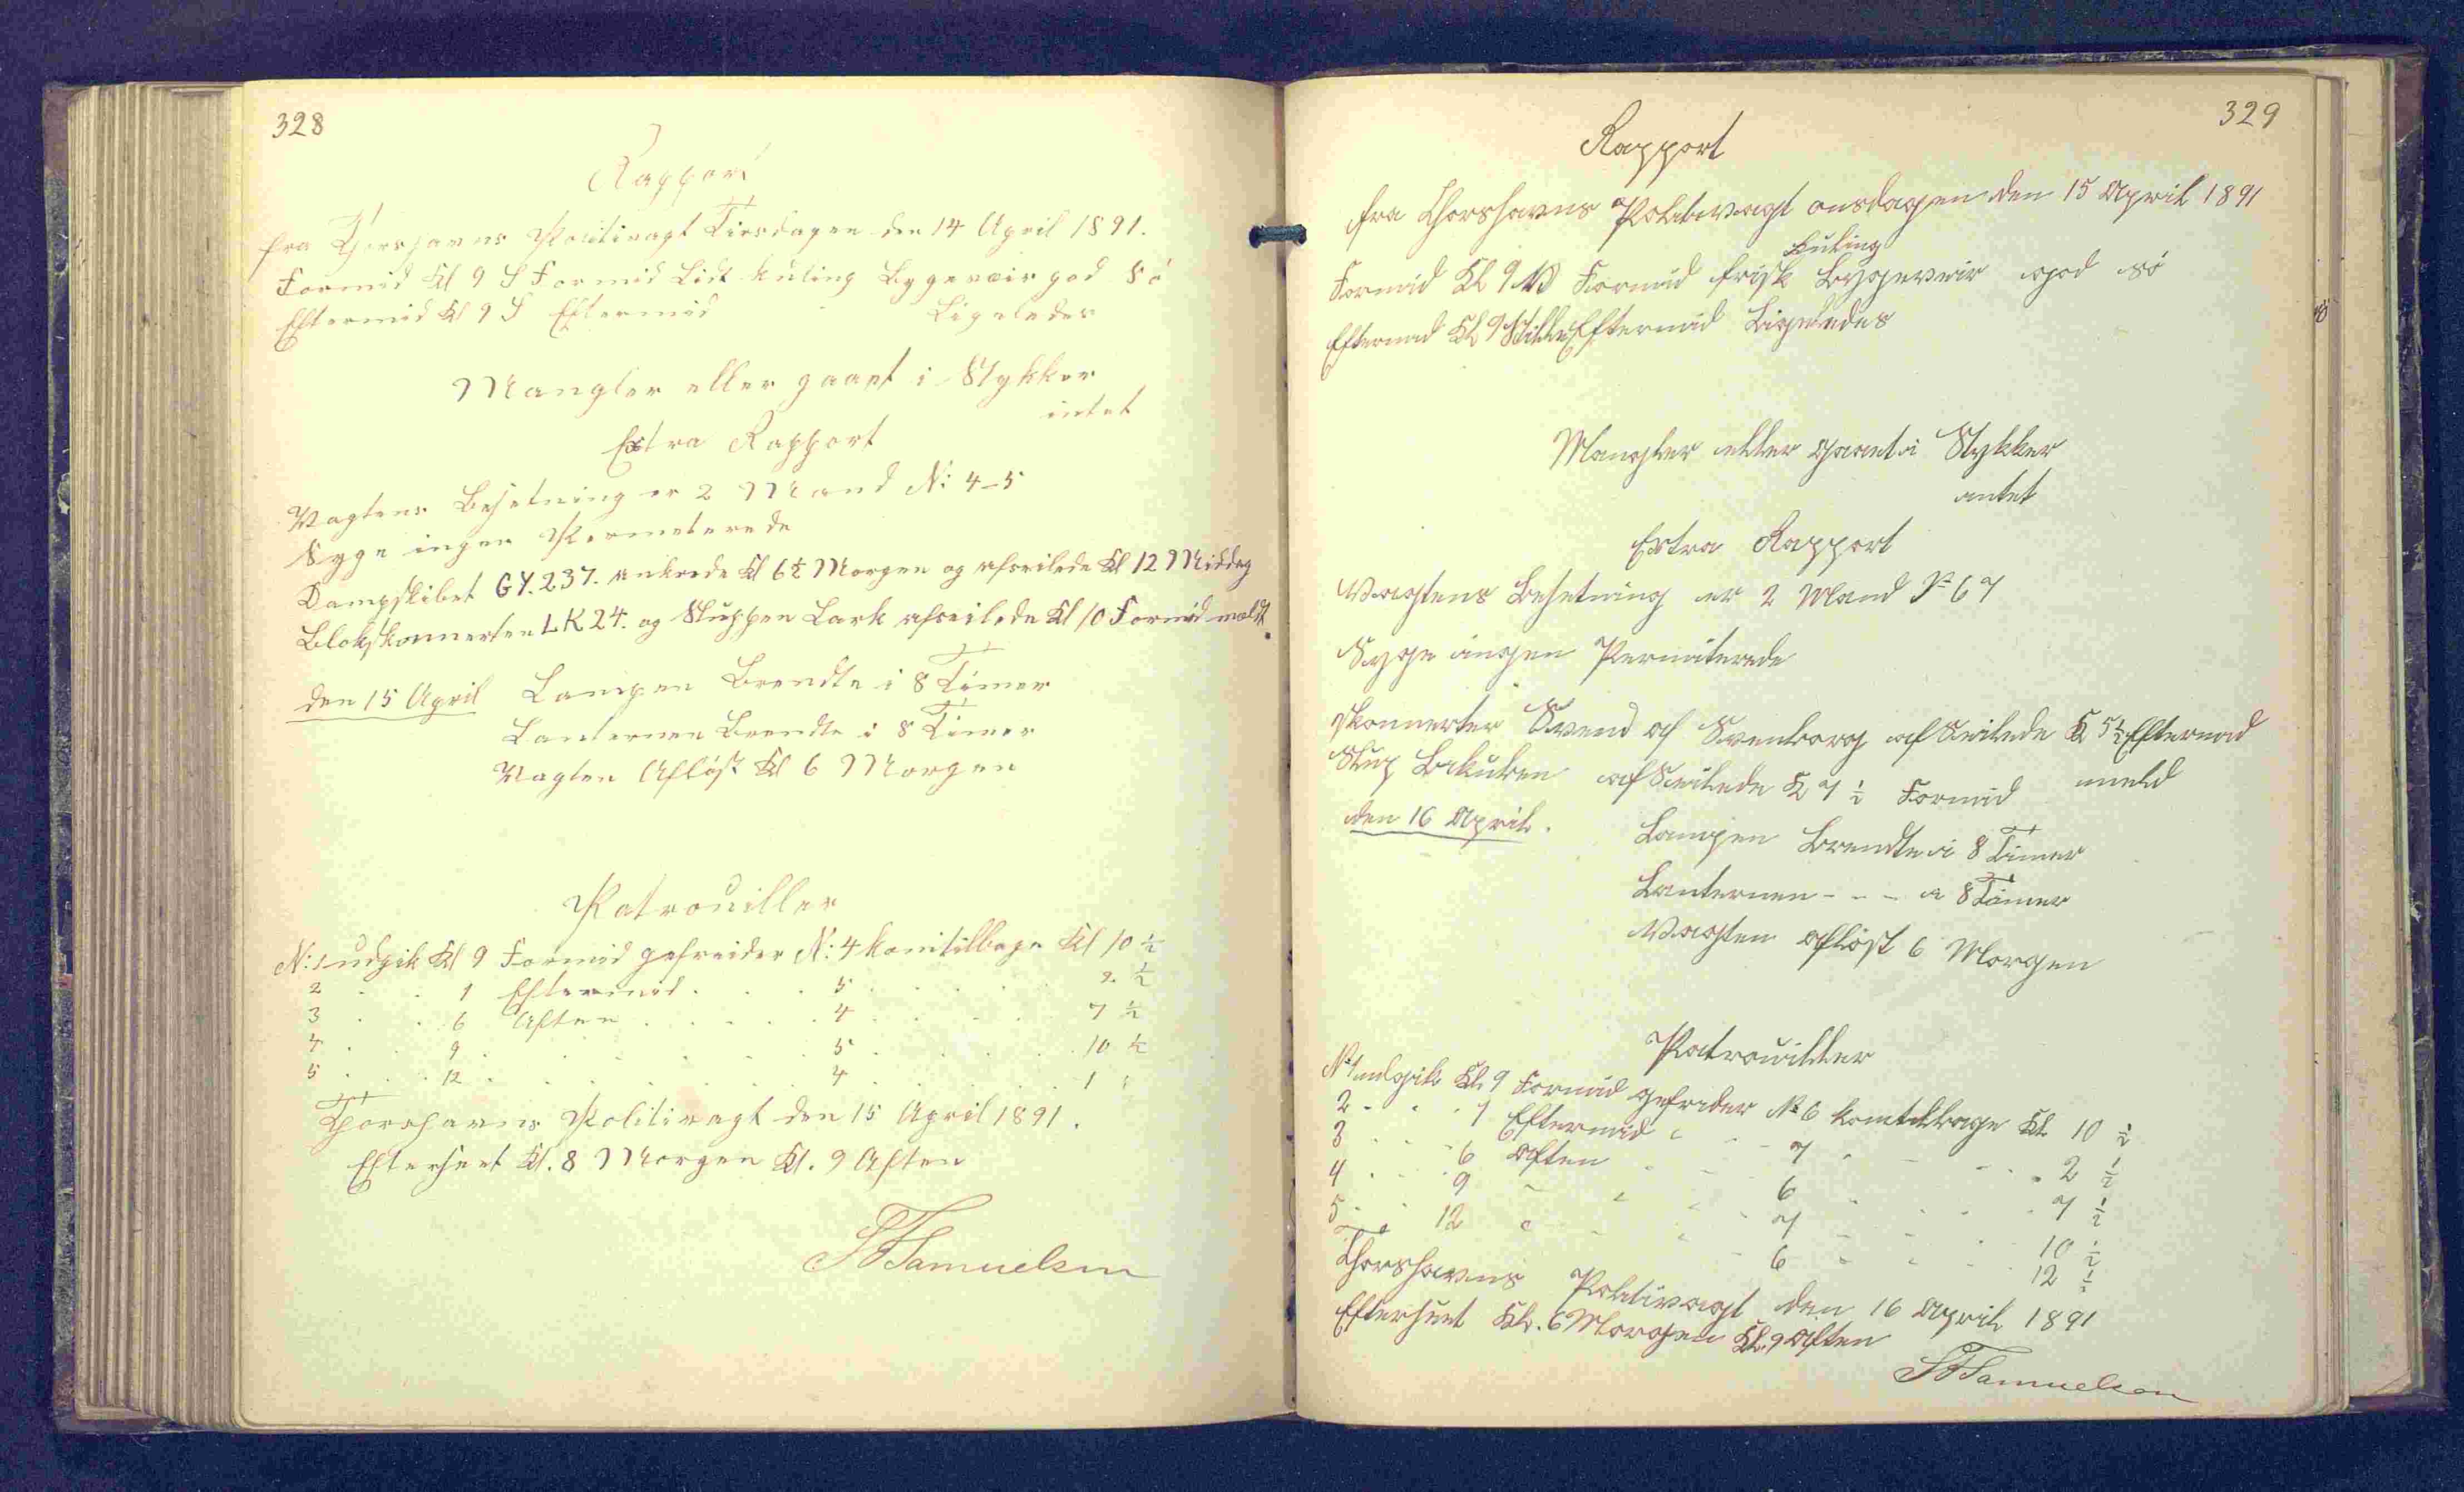 328
Rapport
fra Thorshavns Politivagt Tirsdagen den 14 April 1891.
Formid Kl 9 S Formid Lidt kuling Bygeveir god Sö
Eftermid Kl 9 S Eftermid Ligeledes
Mangler eller gaaet i Stykker
intet
Extra Rapport
Vagtens Besetning er 2 Mand N: 4-5
Syge ingen Permeterede
Dampskibet GY.237. ankrede Kl 6½ Morgen og afseilede Kl 12 Middag
Blokskonnerten LK 24. og Sluppen Lark afseilede Kl 10 Formid meldt.
den 15 April Lampen Brendte i 8 Timer
Lanternen Brendte i 8 Timer
Vagten Aflöst Kl 6 Morgen
Patrouiller
N: 1 udgik Kl 9 Formid gefreider N: 4 kom tilbage Kl 10 ½
2 . . 1 Eftermid . . . 5 . . . . 2 ½
3 . . 6 Aften . . . . 4 . . . . 7 ½
4 . . 9 . . . . . 5 . . . . 10 ½
5 . . 12 . . . . . 4 . . . . 1 "
Thorshavns Politivagt den 15 April 1891.
Efterseet Kl. 8 Morgen Kl. 9 Aften
Samuelsen
329
Rapport
fra Thorshavns Politivagt onsdagen den 15 April 1891
Kuling
Formid Kl 9 Formid frisk Bygeveir god sö
Eftermid Kl 9 Stille Eftermid Ligeledes
Mangler eller gaaet i Stykker
intet
Extra Rapport
Vagtens Besetning er 2 Mand No 6 7
Syge ingen Permiterede
Skonnerter Svend af Svenborg afSeilede K 5½ Eftermid
Slup afSeilede K 7 ½ Formid meld
den 16 April. Lampen Brendte i 8 Timer
Lanternen - - - i 8 Timer
Vagten aflöst 6 Morgen
Patrouiller
No 1 udgik Kl. 9 Formid gefrider No 6 kom tilbage Kl. 10 ½
2 - . . 1 Eftermid . . - 7 . - - . 2 ½
3 . . - 6 Aften . - - 6 . - . . 7 ½
4 . . . 9 - . . - 7 - - . . 10 ½
5 . . 12 . . . - 6 . . . 12 ½
Thorshavns Politivagt den 16 April 1891
Efterseet Kl. 6 Morgen Kl. 9 Aften
Samuelsen